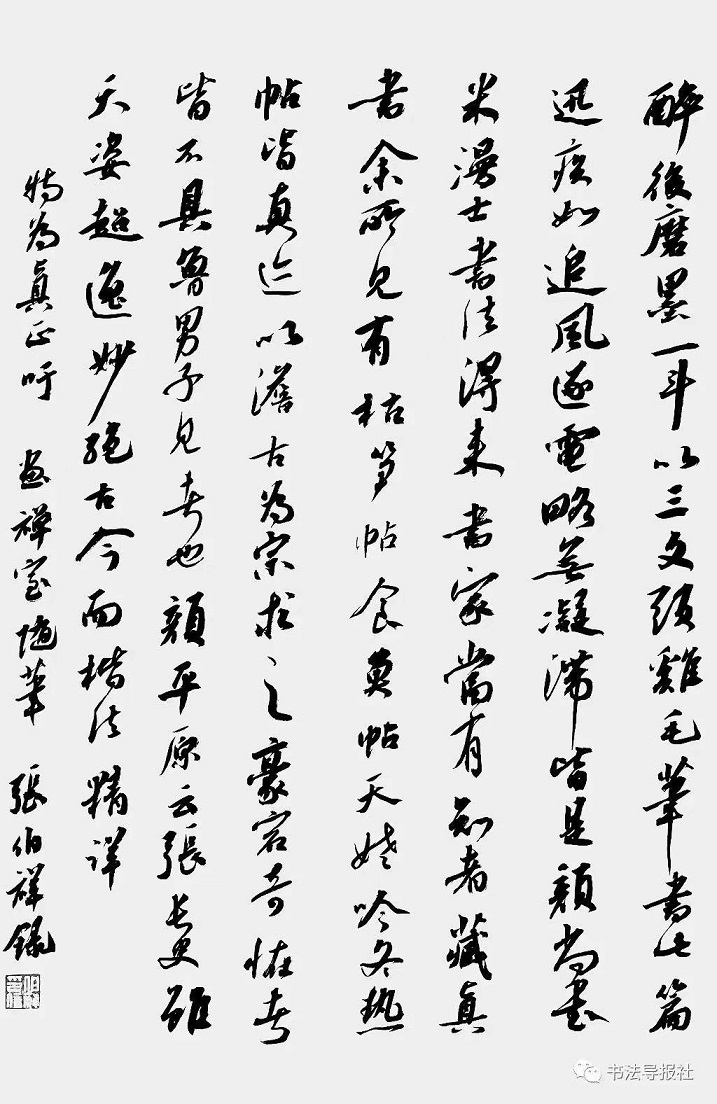 醉後磨墨一斗以三文頭雞毛筆書此篇
迅疾如追風逐電略無凝滯皆是顏尚書
米漫士書法得來書家當有知者藏真
書余所見有枯笋帖食魚帖天姥吟冬熱
帖皆真迹以澹古為宗求之豪宕奇怪者
皆不具魯男子見者也顏平原云張長史雖
天姿超逸妙絕古今而楷法精詳
特為真正吁 畫禪室随筆 張伯祥錄
书法导报社